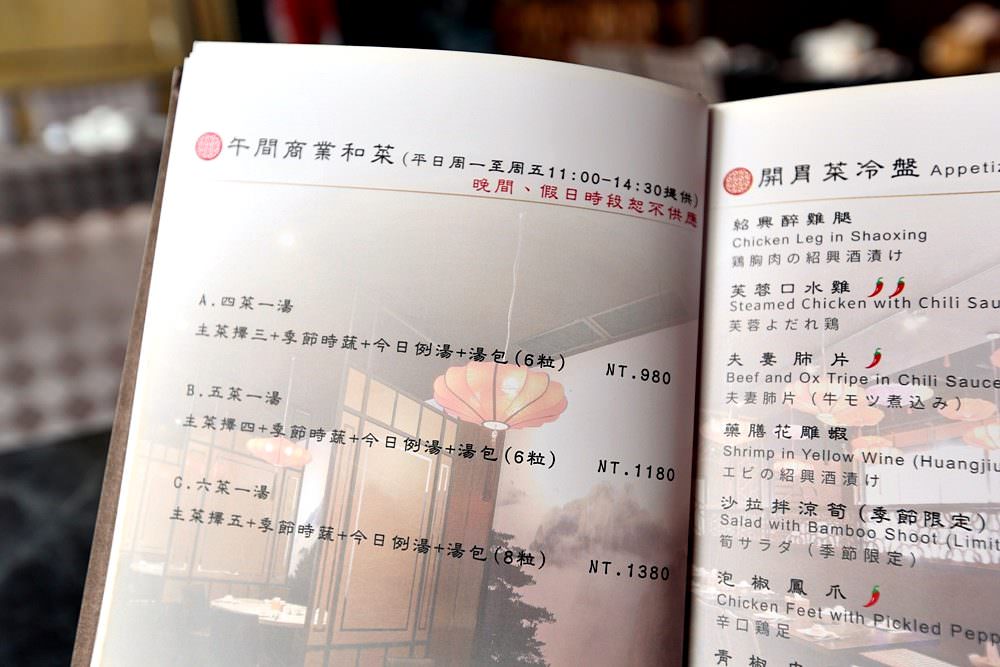 午間商業和菜(平日周一至周五11:00-14:30提供)
晚間、假日時段恕不供應
A.四菜一湯
主菜擇三+季節時蔬+今日例湯+湯包(6粒) NT.980
B.五菜一湯
主菜擇四+季節時蔬+今日例湯+湯包(6粒) NT.1180
C.六菜一湯
主菜擇五+季節時蔬+今日例湯+湯包(8粒) NT.1380
開胃菜冷盤
紹興醉雞腿
Chicken Leg in Shaoxing
鶏胸肉の紹興酒漬け
芙蓉口水雞
Steamed Chicken with Chili
芙蓉よだれ鶏
夫妻肺片
Beef and Ox Tripe in Chili Sauce
夫妻肺片（牛モツ煮込み）
藥膳花雕蝦
Shrimp in Yellow Wine
エビの紹興酒漬け
沙拉拌涼筍(季節限定)
Salad with Bamboo Shoot
筍サラダ（季節限定）
泡椒鳳爪
Chicken Feet with Pickled
辛口鶏足
青椒